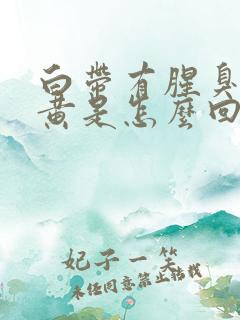 白带有腥臭
黄是怎麼回
妃子一笑
未经同意禁止转载